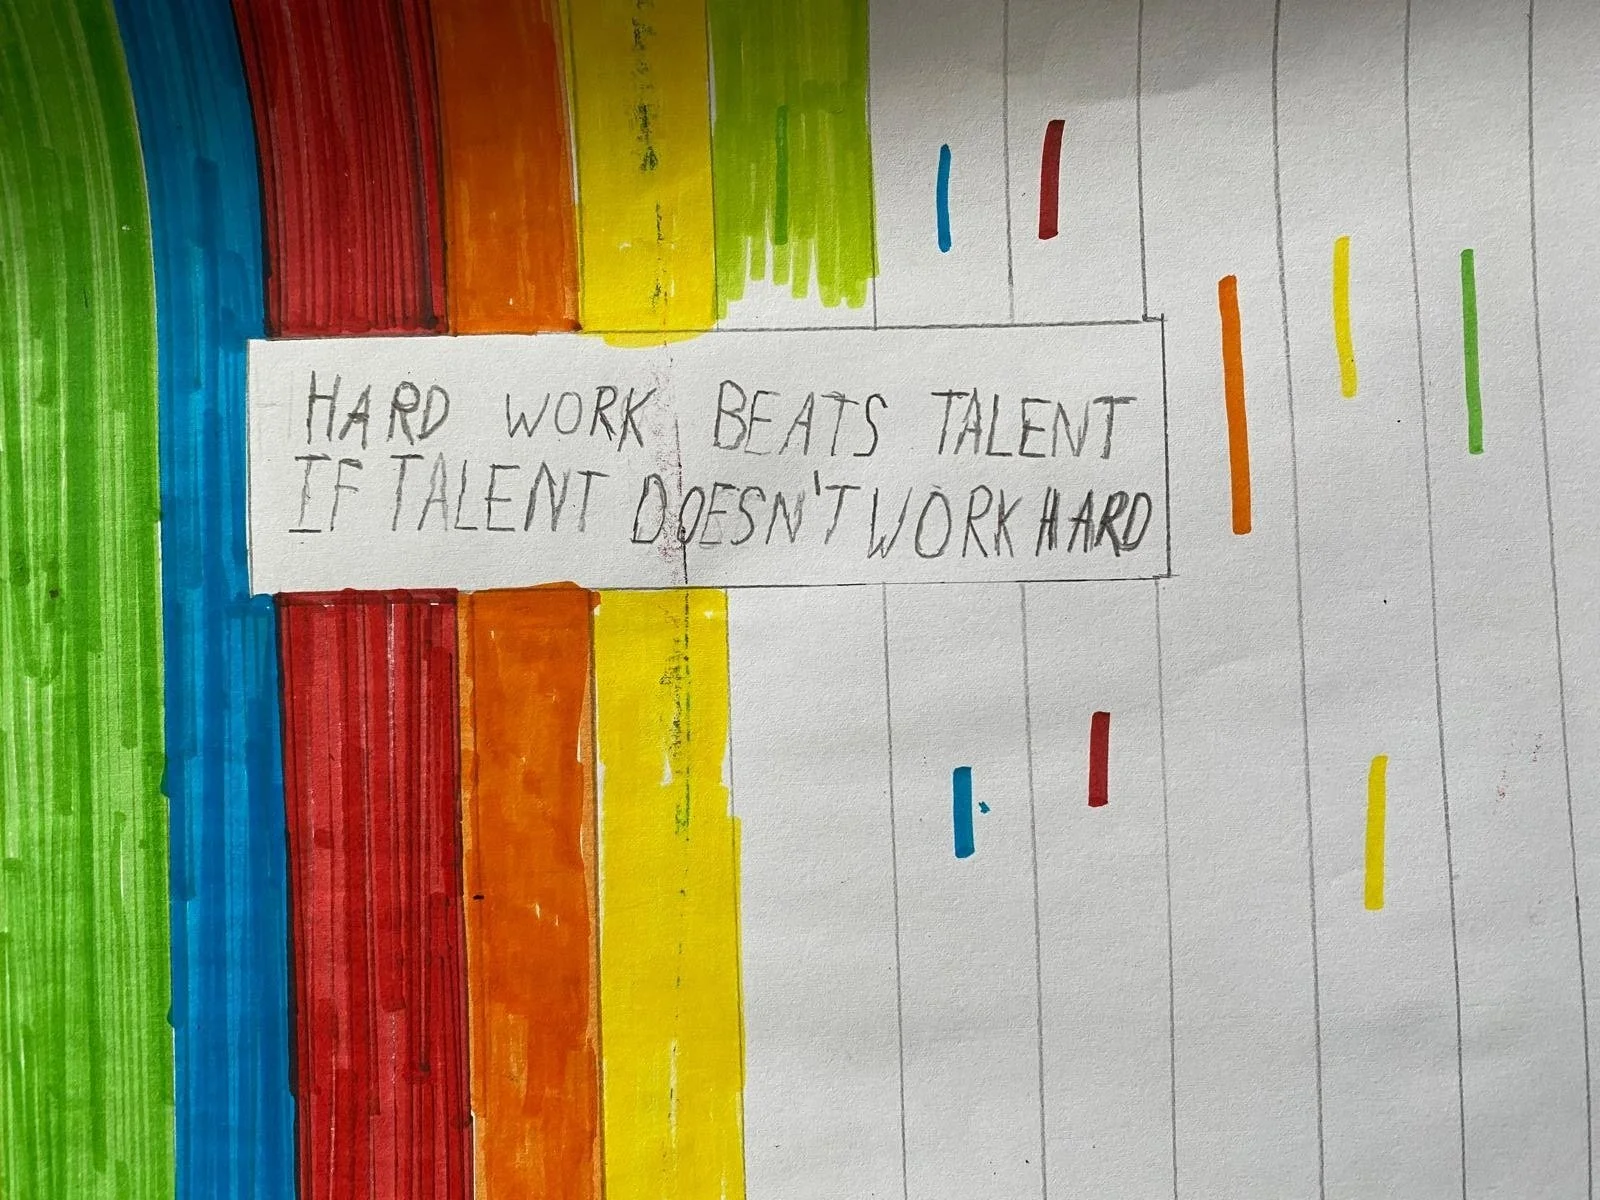 HARD WORK BEATS TALENT
IF TALENT DOESN'T WORK HARD